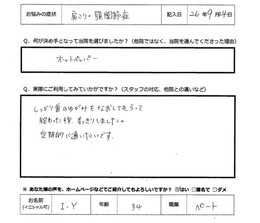 お悩みの症状 肩こり・顎関節症 記入日 26年9月4日
Q. 何が決め手となって当院を選びましたか？（他院ではなく、当院を選んでくださった理由）
ホットペッパー
Q. 実際にご利用してみていかがですか？（スタッフの対応、他院との違いなど）
しっかり首のゆがみをなおしてもらって
終わった後、すっきりしました。
定期的に通いたいです。
※ あなた様の声を、ホームページなどでご紹介してもよろしいですか？ はい □匿名で □ダメ
お名前（イニシャル可） I.Y 年齢 34 職業 パート